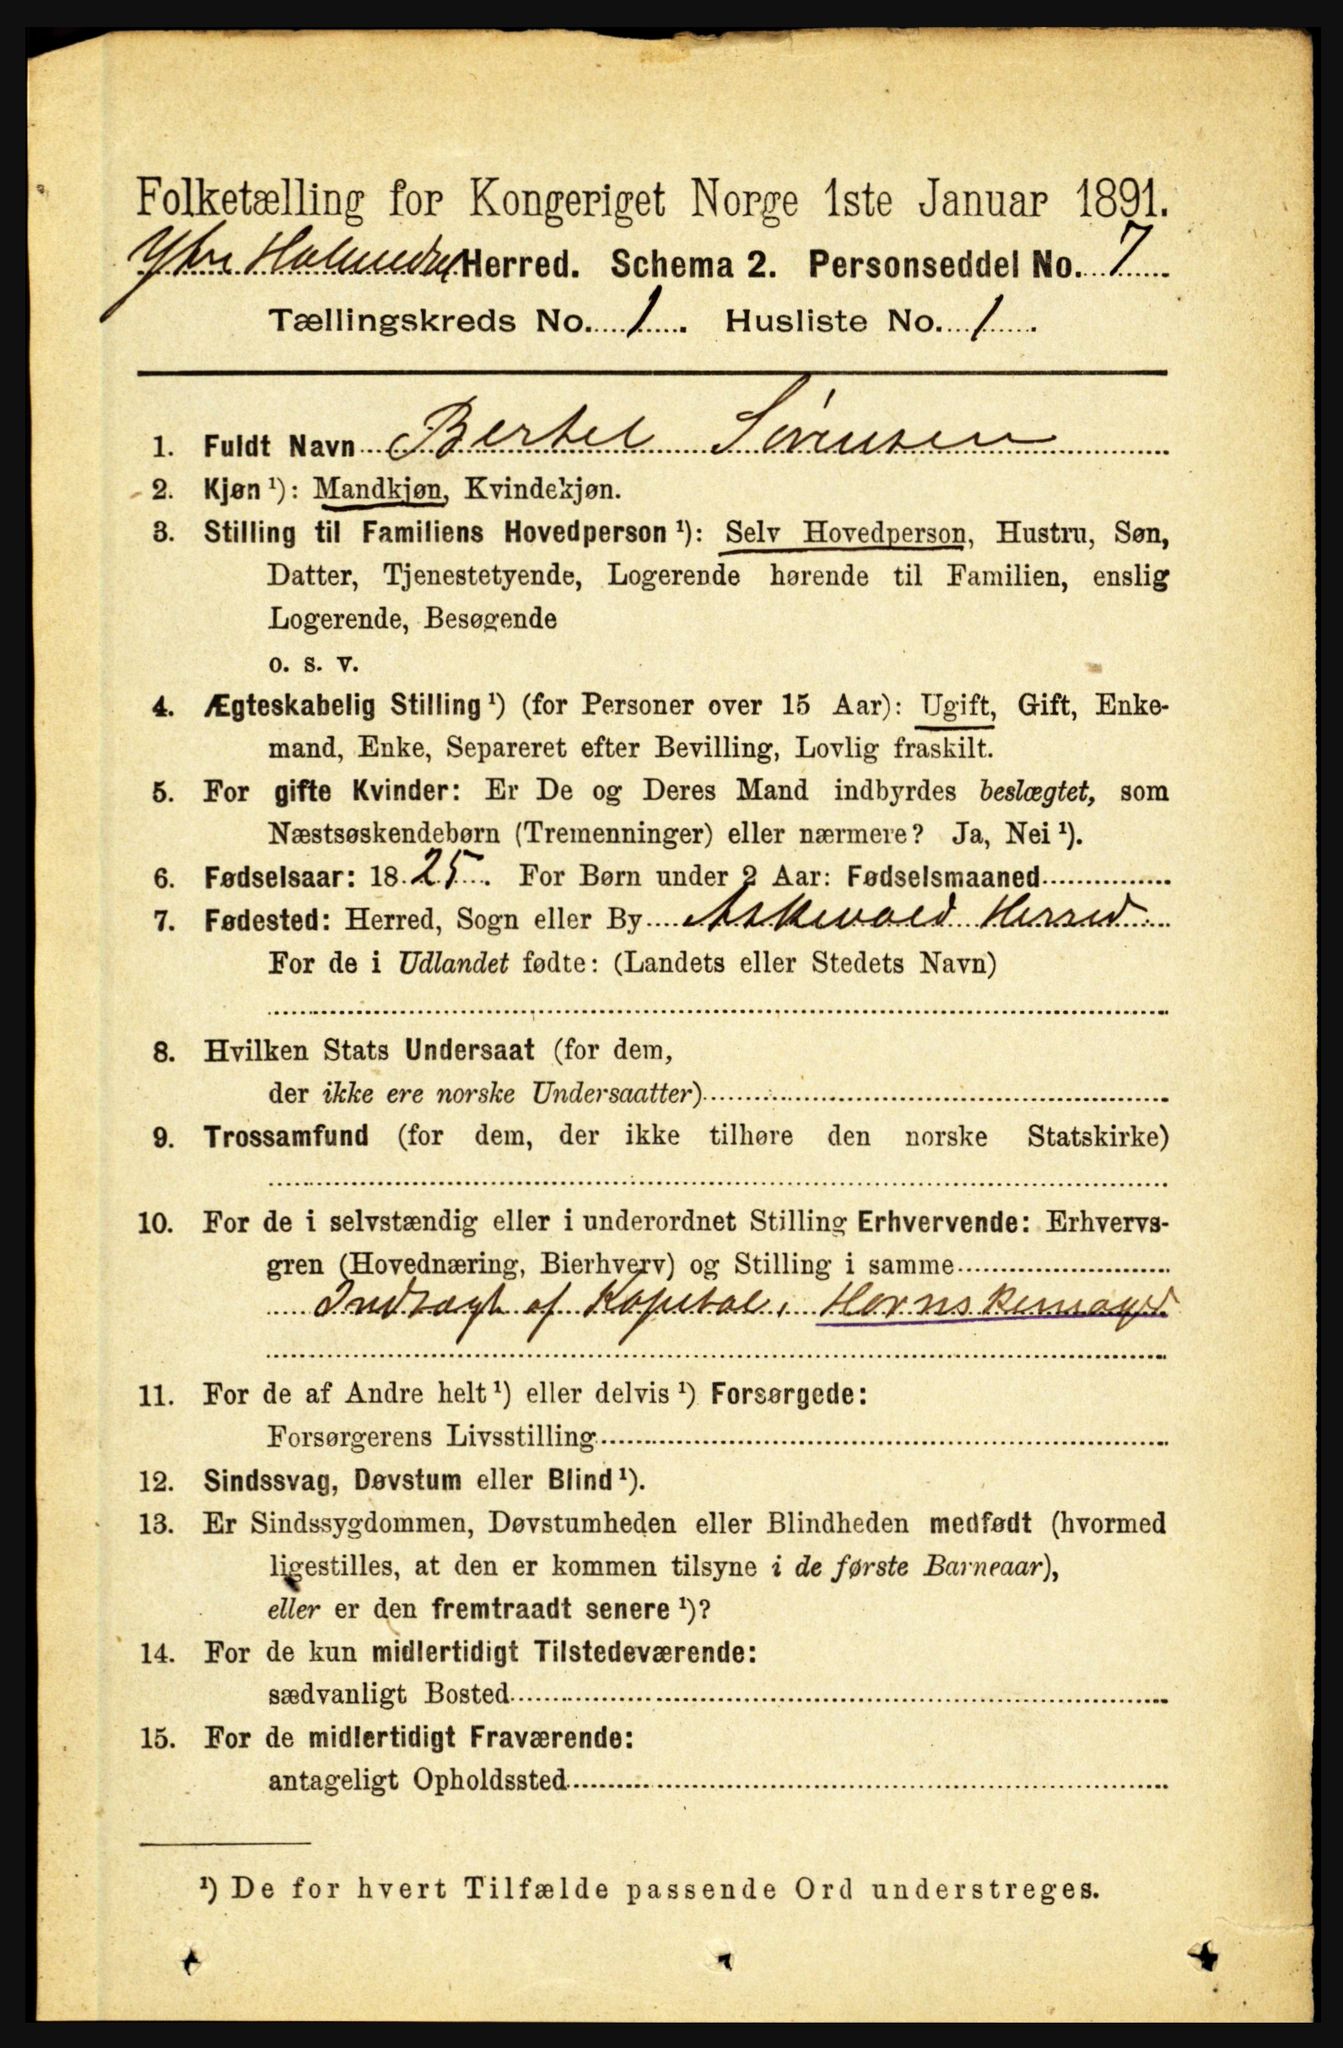 Folketælling for Kongeriget Norge 1ste Januar 1891.
Ytre Holmedal Herred. Schema 2. Personseddel No. 7
Tællingskreds No. 1. Husliste No. 1.
1. Fuldt Navn Bertel Sørensen
2. Kjøn ¹): Mandkjøn, Kvindekjøn.
3. Stilling til Familiens Hovedperson ¹): Selv Hovedperson, Hustru, Søn,
Datter, Tjenestetyende, Logerende hørende til Familien, enslig
Logerende, Besøgende
o. s. v.
4. Ægteskabelig Stilling ¹) (for Personer over 15 Aar): Ugift, Gift, Enke-
mand, Enke, Separeret efter Bevilling, Lovlig fraskilt.
5. For gifte Kvinder: Er De og Deres Mand indbyrdes beslægtet, som
Næstsøskendebørn (Tremenninger) eller nærmere? Ja, Nei ¹).
6. Fødselsaar: 1825. For Børn under 2 Aar: Fødselsmaaned
7. Fødested: Herred, Sogn eller By Askevold Herred
For de i Udlandet fødte: (Landets eller Stedets Navn)
8. Hvilken Stats Undersaat (for dem,
der ikke ere norske Undersaatter)
9. Trossamfund (for dem, der ikke tilhøre den norske Statskirke)
10. For de i selvstændig eller i underordnet Stilling Erhvervende: Erhvervs-
gren (Hovednæring, Bierhverv) og Stilling i samme
Indtægt af Kapital, Hornskemager
11. For de af Andre helt ¹) eller delvis ¹) Forsørgede:
Forsørgerens Livsstilling
12. Sindssvag, Døvstum eller Blind ¹).
13. Er Sindssygdommen, Døvstumheden eller Blindheden medfødt (hvormed
ligestilles, at den er kommen tilsyne i de første Barneaar),
eller er den fremtraadt senere ¹)?
14. For de kun midlertidigt Tilstedeværende:
sædvanligt Bosted
15. For de midlertidigt Fraværende:
antageligt Opholdssted
¹) De for hvert Tilfælde passende Ord understreges.